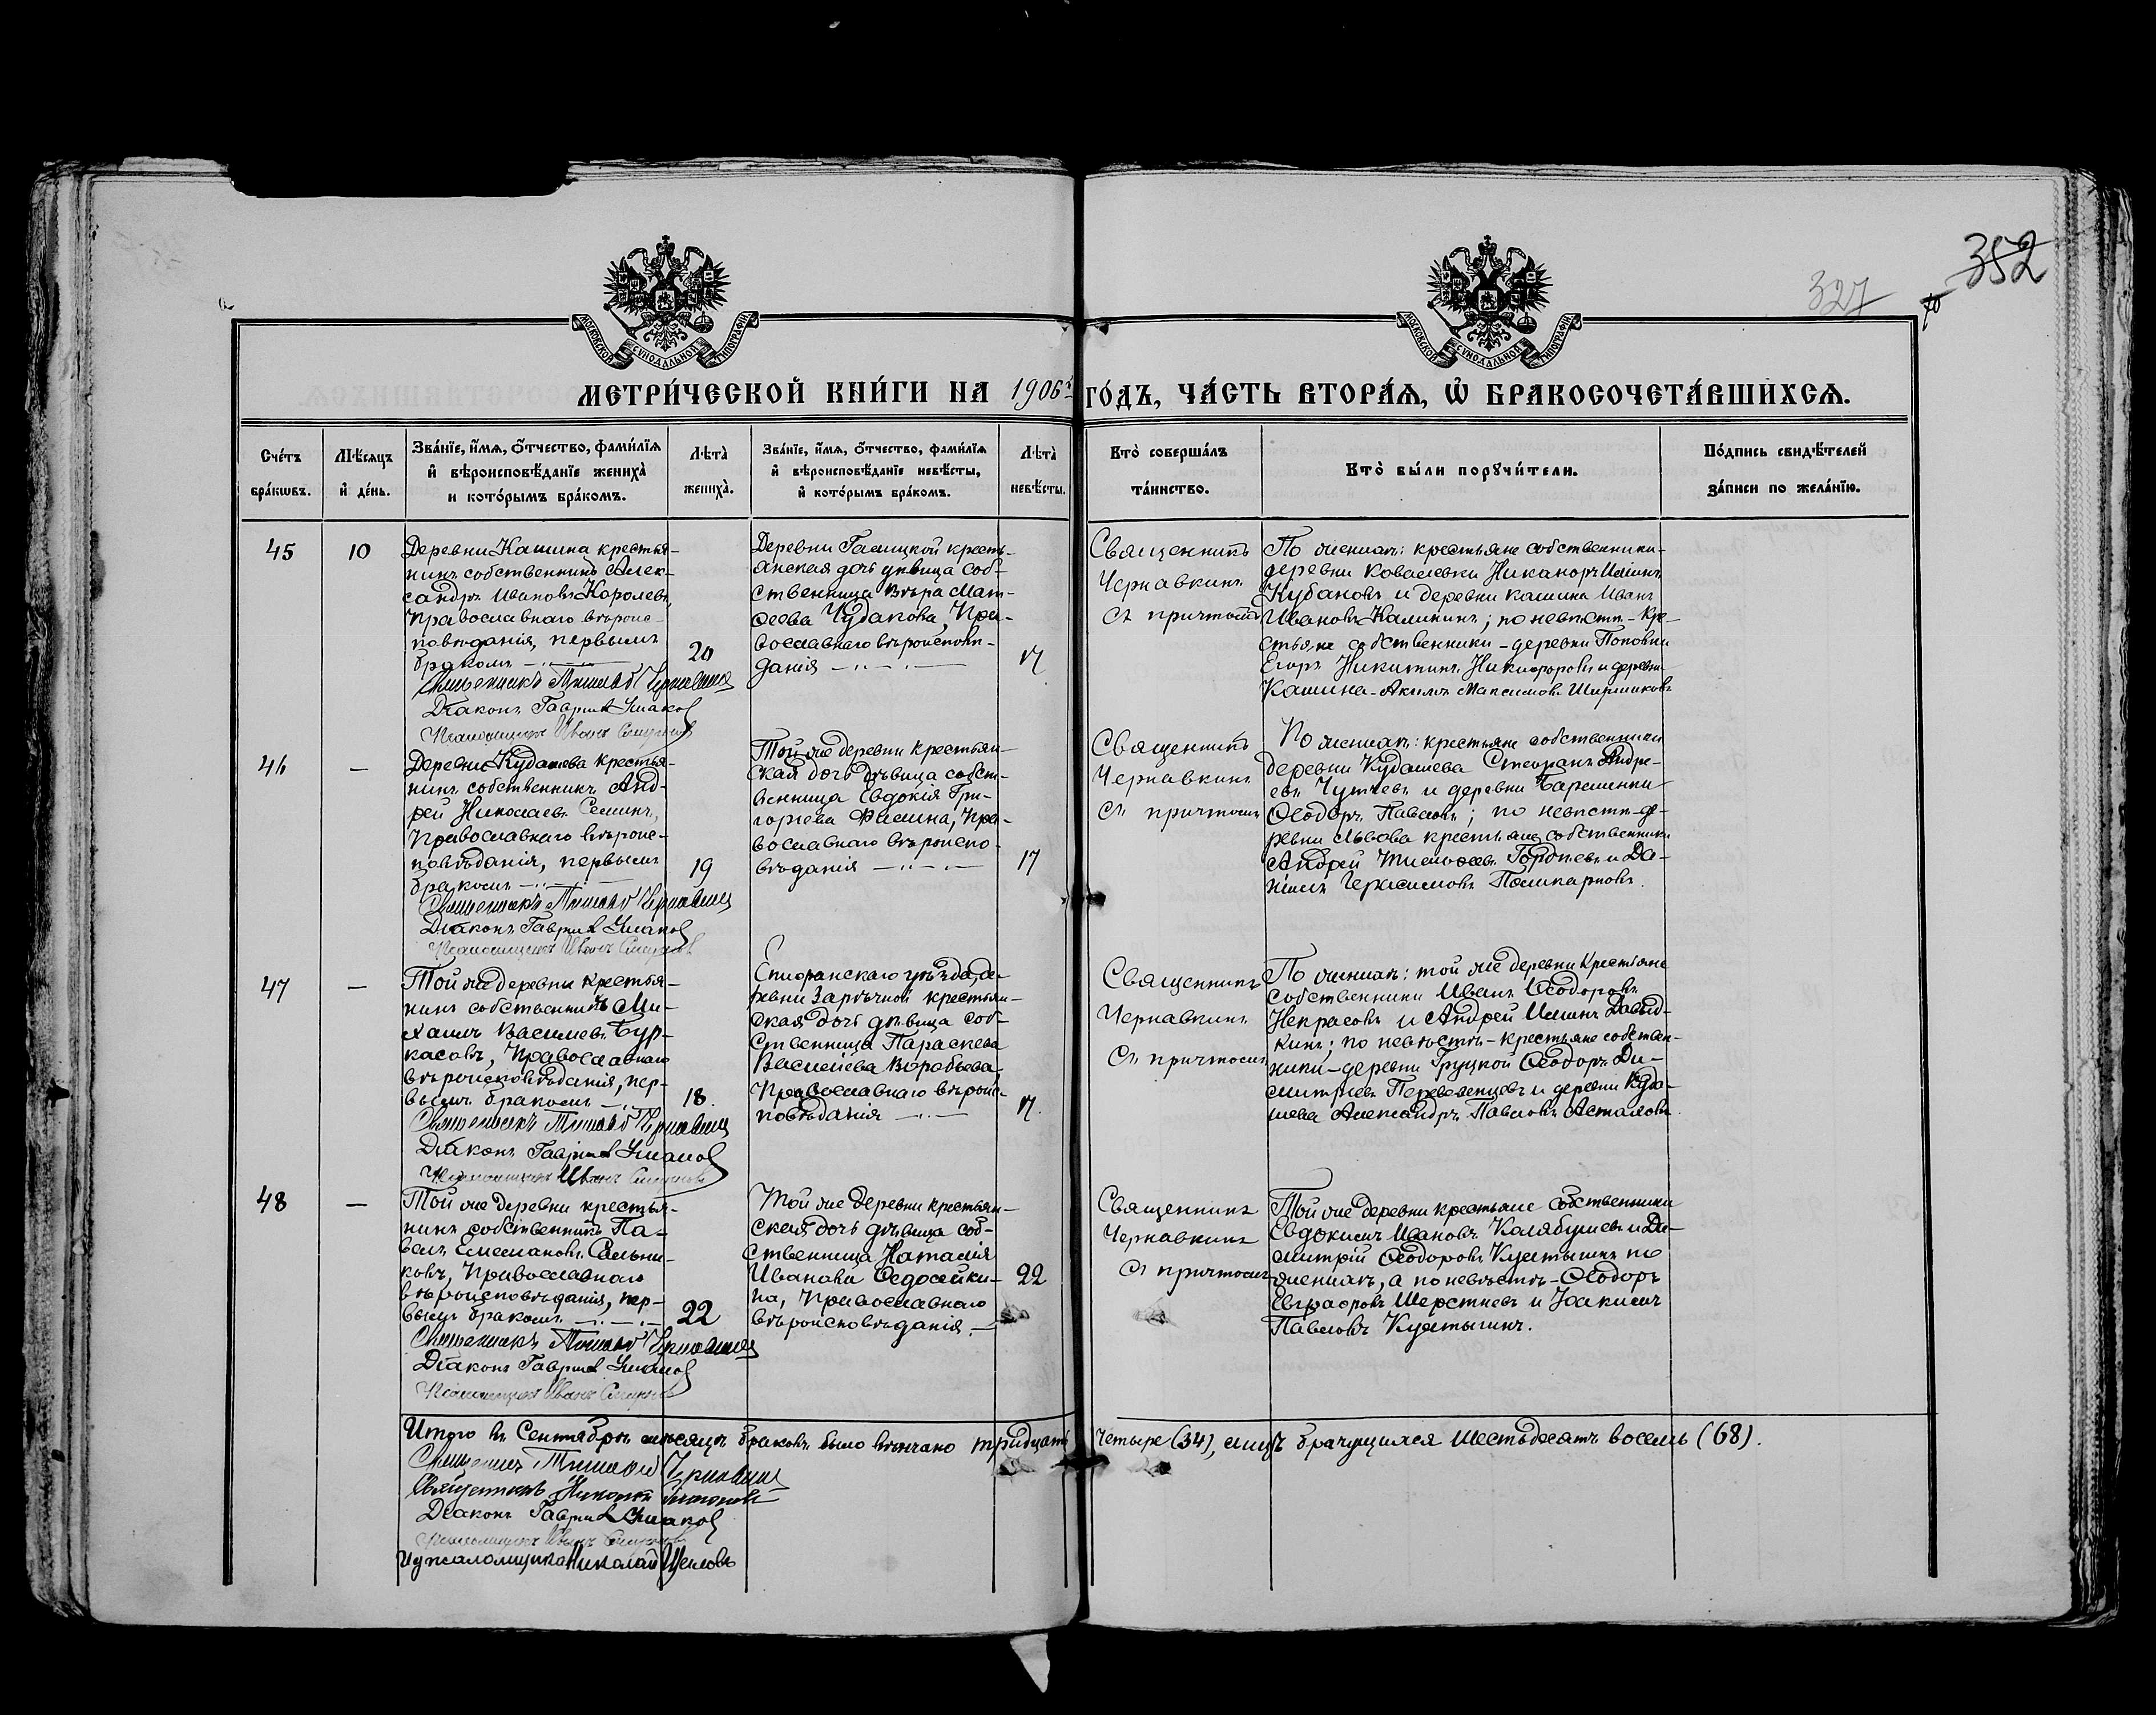 352
327
МОСКОВСКОЙ СѴНОДАЛЬНОЙ ТИПОГРАФІИ
МОСКОВСКОЙ СѴНОДАЛЬНОЙ ТИПОГРАФІИ
МЕТРИ́ЧЕСКОЙ КНИ́ГИ НА 1906 й ГО́ДЪ, ЧА́СТЬ ВТОРА́Ѧ, Ѽ БРАКОСОЧЕТА́ВШИХСѦ.
Сче́тъ бра́кѡвъ.
Мѣ́сѧцъ и҆ де́нь.
Зва́нїе, и҆́мѧ, ѻ҆́тчество, фами́лїѧ и҆ вѣроисповѣ́данїе жениха̀ и кото́рымъ бра́комъ.
Лѣта̀ жениха̀.
Зва́нїе, и҆́мѧ, ѻ҆́тчество, фами́лїѧ и҆ вѣроисповѣ́данїе невѣ́сты, и҆ кото́рымъ бра́комъ.
Лѣта̀ невѣ́сты.
Кто̀ соверша́лъ та́инство.
Кто̀ бы́ли порꙋчи́тели.
По́дпись свидѣ́телей за́писи по жела́нїю.
45
10
Деревни Кашина крестья-
нинъ собственникъ Алек-
сандръ Ивановъ Королевъ,
православнаго вѣроис-
повѣданія, первымъ
бракомъ
20
Священникъ Тимофей Чернавкинъ
Діаконъ Гавриилъ Ушаковъ
Псаломщикъ Иванъ Смирновъ
Деревни Гасицкой кресть-
янская дочь дѣвица соб-
ственница Вѣра Мат-
ѳеева Чудакова, Пра-
вославнаго вѣроисповѣ-
данія
17
Священникъ
Чернавкинъ
съ причтомъ
По женихѣ: крестьяне собственники-
деревни Ковалевки Никаноръ Ильинъ
Кубаковъ и деревни Кашина Иванъ
Ивановъ Калининъ; по невѣстѣ - кре-
стьяне собственники - деревни Поповки
Егоръ Никитинъ Никифоровъ и деревни
Кашина - Акимъ Максимовъ Ширшиковъ
46
—
Деревни Кудашева крестья-
нинъ собственникъ Анд-
рей Николаевъ Семинъ,
Православнаго вѣроис-
повѣданія, первымъ
бракомъ
19
Священникъ Тимофей Чернавкинъ
Діаконъ Гавриилъ Ушаковъ
Псаломщикъ Иванъ Смирновъ
Той же деревни крестьян-
ская дочь дѣвица собст-
венница Евдокія Гри-
горьева Филина, Пра-
вославнаго вѣроиспо-
вѣданія
17
Священникъ
Чернавкинъ
съ причтомъ
По женихѣ: крестьяне собственники
деревни Кудашева Стефанъ Андре-
евъ Чумаевъ и деревни Барышенки
Ѳеодоръ Павловъ; по невѣстѣ - де-
ревни Львова крестьяне собственники
Андрей Тимофеевъ Гордѣевъ и Да-
ніилъ Герасимовъ Поликарповъ.
47
—
Той же деревни крестья-
нинъ собственникъ Ми-
хаилъ Васильевъ Бур-
касовъ, Православнаго
вѣроисповѣданія, пер-
вымъ бракомъ
18.
Священникъ Тимофей Чернавкинъ
Діаконъ Гавриилъ Ушаковъ
Псаломщикъ Иванъ Смирновъ
Епифанскаго уѣзда, де-
ревни Зарѣчной крестьян-
ская дочь дѣвица соб-
ственница Параскева
Васильева Воробьева,
Православнаго вѣроис-
повѣданія
17.
Священникъ
Чернавкинъ
Съ причтомъ
По женихѣ: той же деревни Крестьяне
собственники Иванъ Ѳеодоровъ
Некрасовъ и Андрей Ильинъ Давыд-
кинъ; по невѣстѣ - крестьяне собствен-
ники - деревни Грицкой Ѳеодоръ Ди-
митріевъ Переведенцевъ и деревни Куда-
шева Александръ Павловъ Асташовъ.
48
—
Той же деревни крестья-
нинъ собственникъ Па-
велъ Емельяновъ Сальни-
ковъ, Православнаго
вѣроисповѣданія, пер-
вымъ бракомъ
22
Священникъ Тимофей Чернавкинъ
Діаконъ Гавриилъ Ушаковъ
Псаломщикъ Иванъ Смирновъ
Той же деревни крестьян-
ская дочь дѣвица соб-
ственница Наталія
Иванова Ѳедосейки-
на, Православнаго
вѣроисповѣданія.
22
Священникъ
Чернавкинъ
Съ причтомъ
Той же деревни крестьяне собственники
Евдокимъ Ивановъ Калябушевъ и Ди-
митрій Ѳеодоровъ Кумтыгинъ по
женихѣ, а по невѣстѣ - Ѳеодоръ
Евграфовъ Шерстневъ и Іоакимъ
Павловъ Кумтыгинъ.
Итого въ Сентябрѣ мѣсяцѣ браковъ было вѣнчано тридцать четыре (34), лицъ брачущихся шестьдесятъ восемь (68).
Священникъ Тимофей Чернавкинъ
Священникъ Николай
Діаконъ Гавриилъ Ушаковъ
Псаломщикъ Иванъ Смирновъ
И д псаломщика Николай Щегловъ